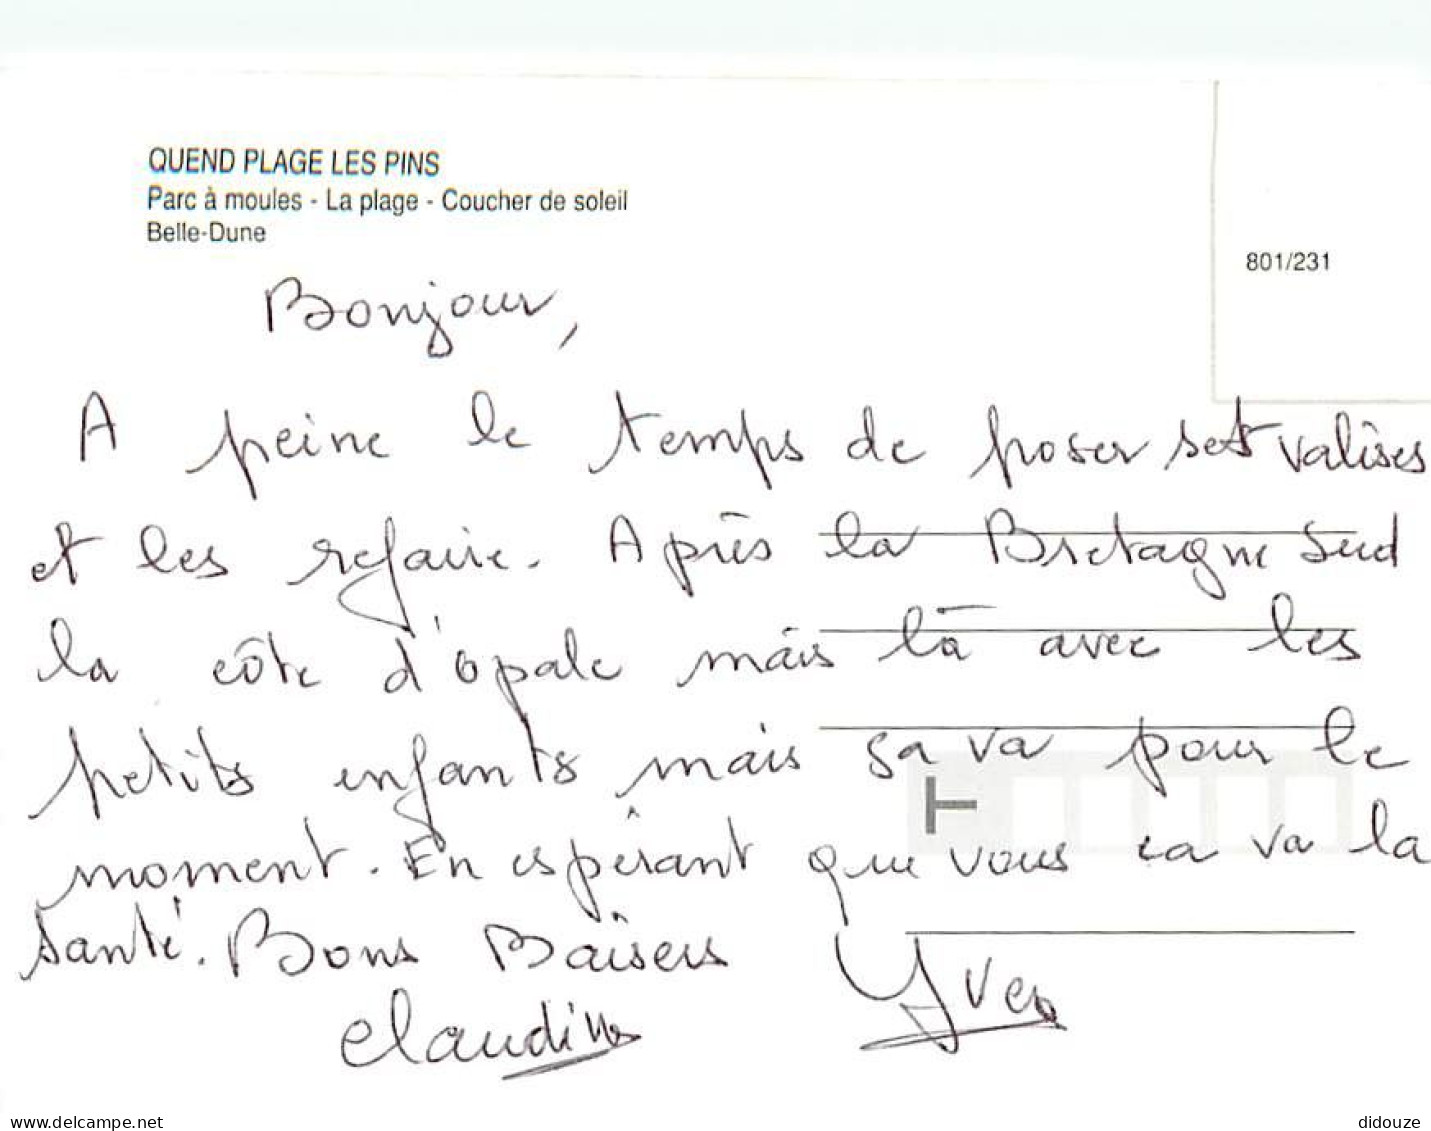 QUEND PLAGE LES PINS
Parc à moules - La plage - Coucher de soleil
Belle-Dune
801/231
Bonjour,
A peine le temps de poser ses valises
et les refaire. Après la Bretagne Sud
la côte d'opale mais là avec les
petits enfants mais ça va pour le
moment. En espérant que vous ca va la
santé. Bons Baisers
Claudine Yves
delcampe.net
didouze